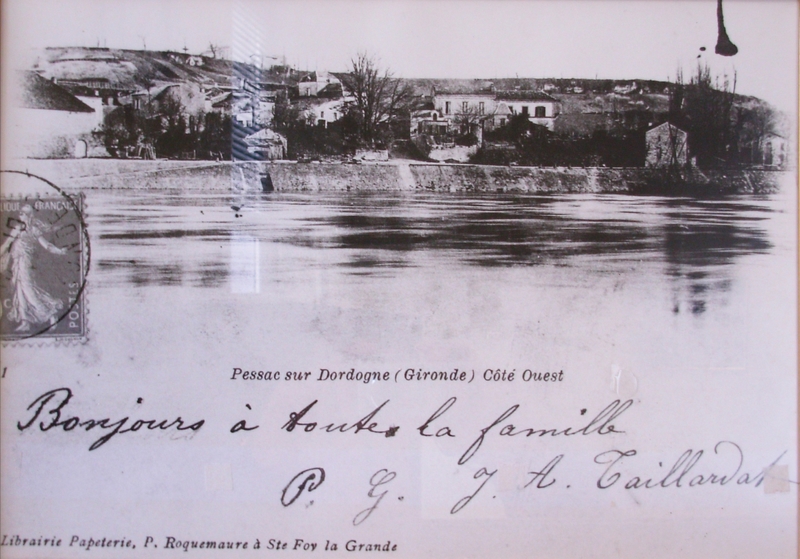 FRANÇAISE
POSTES
1
Pessac sur Dordogne (Gironde) Côté Ouest
Bonjours à toute la famille
P. G. J. A. Taillardat
Librairie Papeterie, P. Roquemaure à Ste Foy la Grande